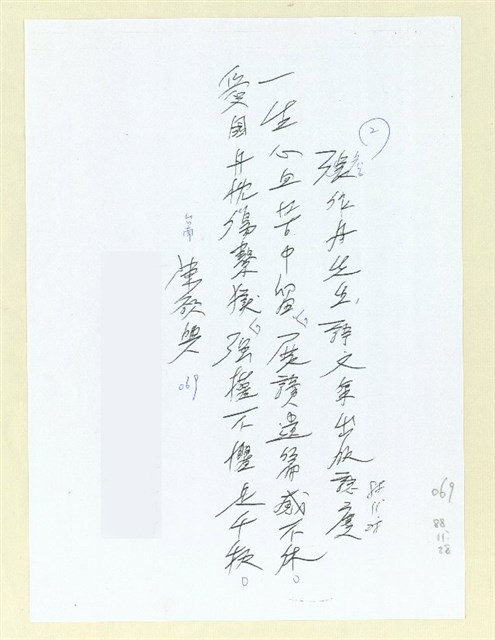 2
張作舟先生、詩文集出版誌慶
88.11.28
一生心血苦中留,展讀遺篇感不休。
愛國丹忱傷繫獄,強權不懼是千秋。
台南
069
069
88.11.28